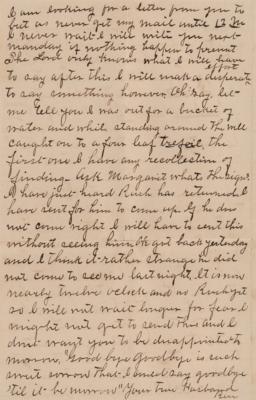 I am looking for a letter from you to
but as never get my mail until 12 M
I never wait I will will you next
monday if nothing happen to prevent
The Lord only knows what I will have
to say after this I will make a desperate effort
to say something however Oh! say, let
me tell you I was out for a bucket of
water and while standing around the well
caught on to a four leaf trefoil, the
first one I have any recollection of
finding. Ask Margaret whats the sign?
I have just heard Ruch has returned I
have sent for him to come up. If he does
not come right I will have to sent this
without seeing him. He got back yesterday
and I think it rather strange he did
not come to see me last night. It is now
nearly twelve o'clock and no Ruch yet
so I will not wait longer for fear I
might not get to send this and I
don't want you to be disappointed to
morrow, "Good bye Goodbye is such
sweet sorrow that I could say goodbye
'til it be morrow" Your true Husband